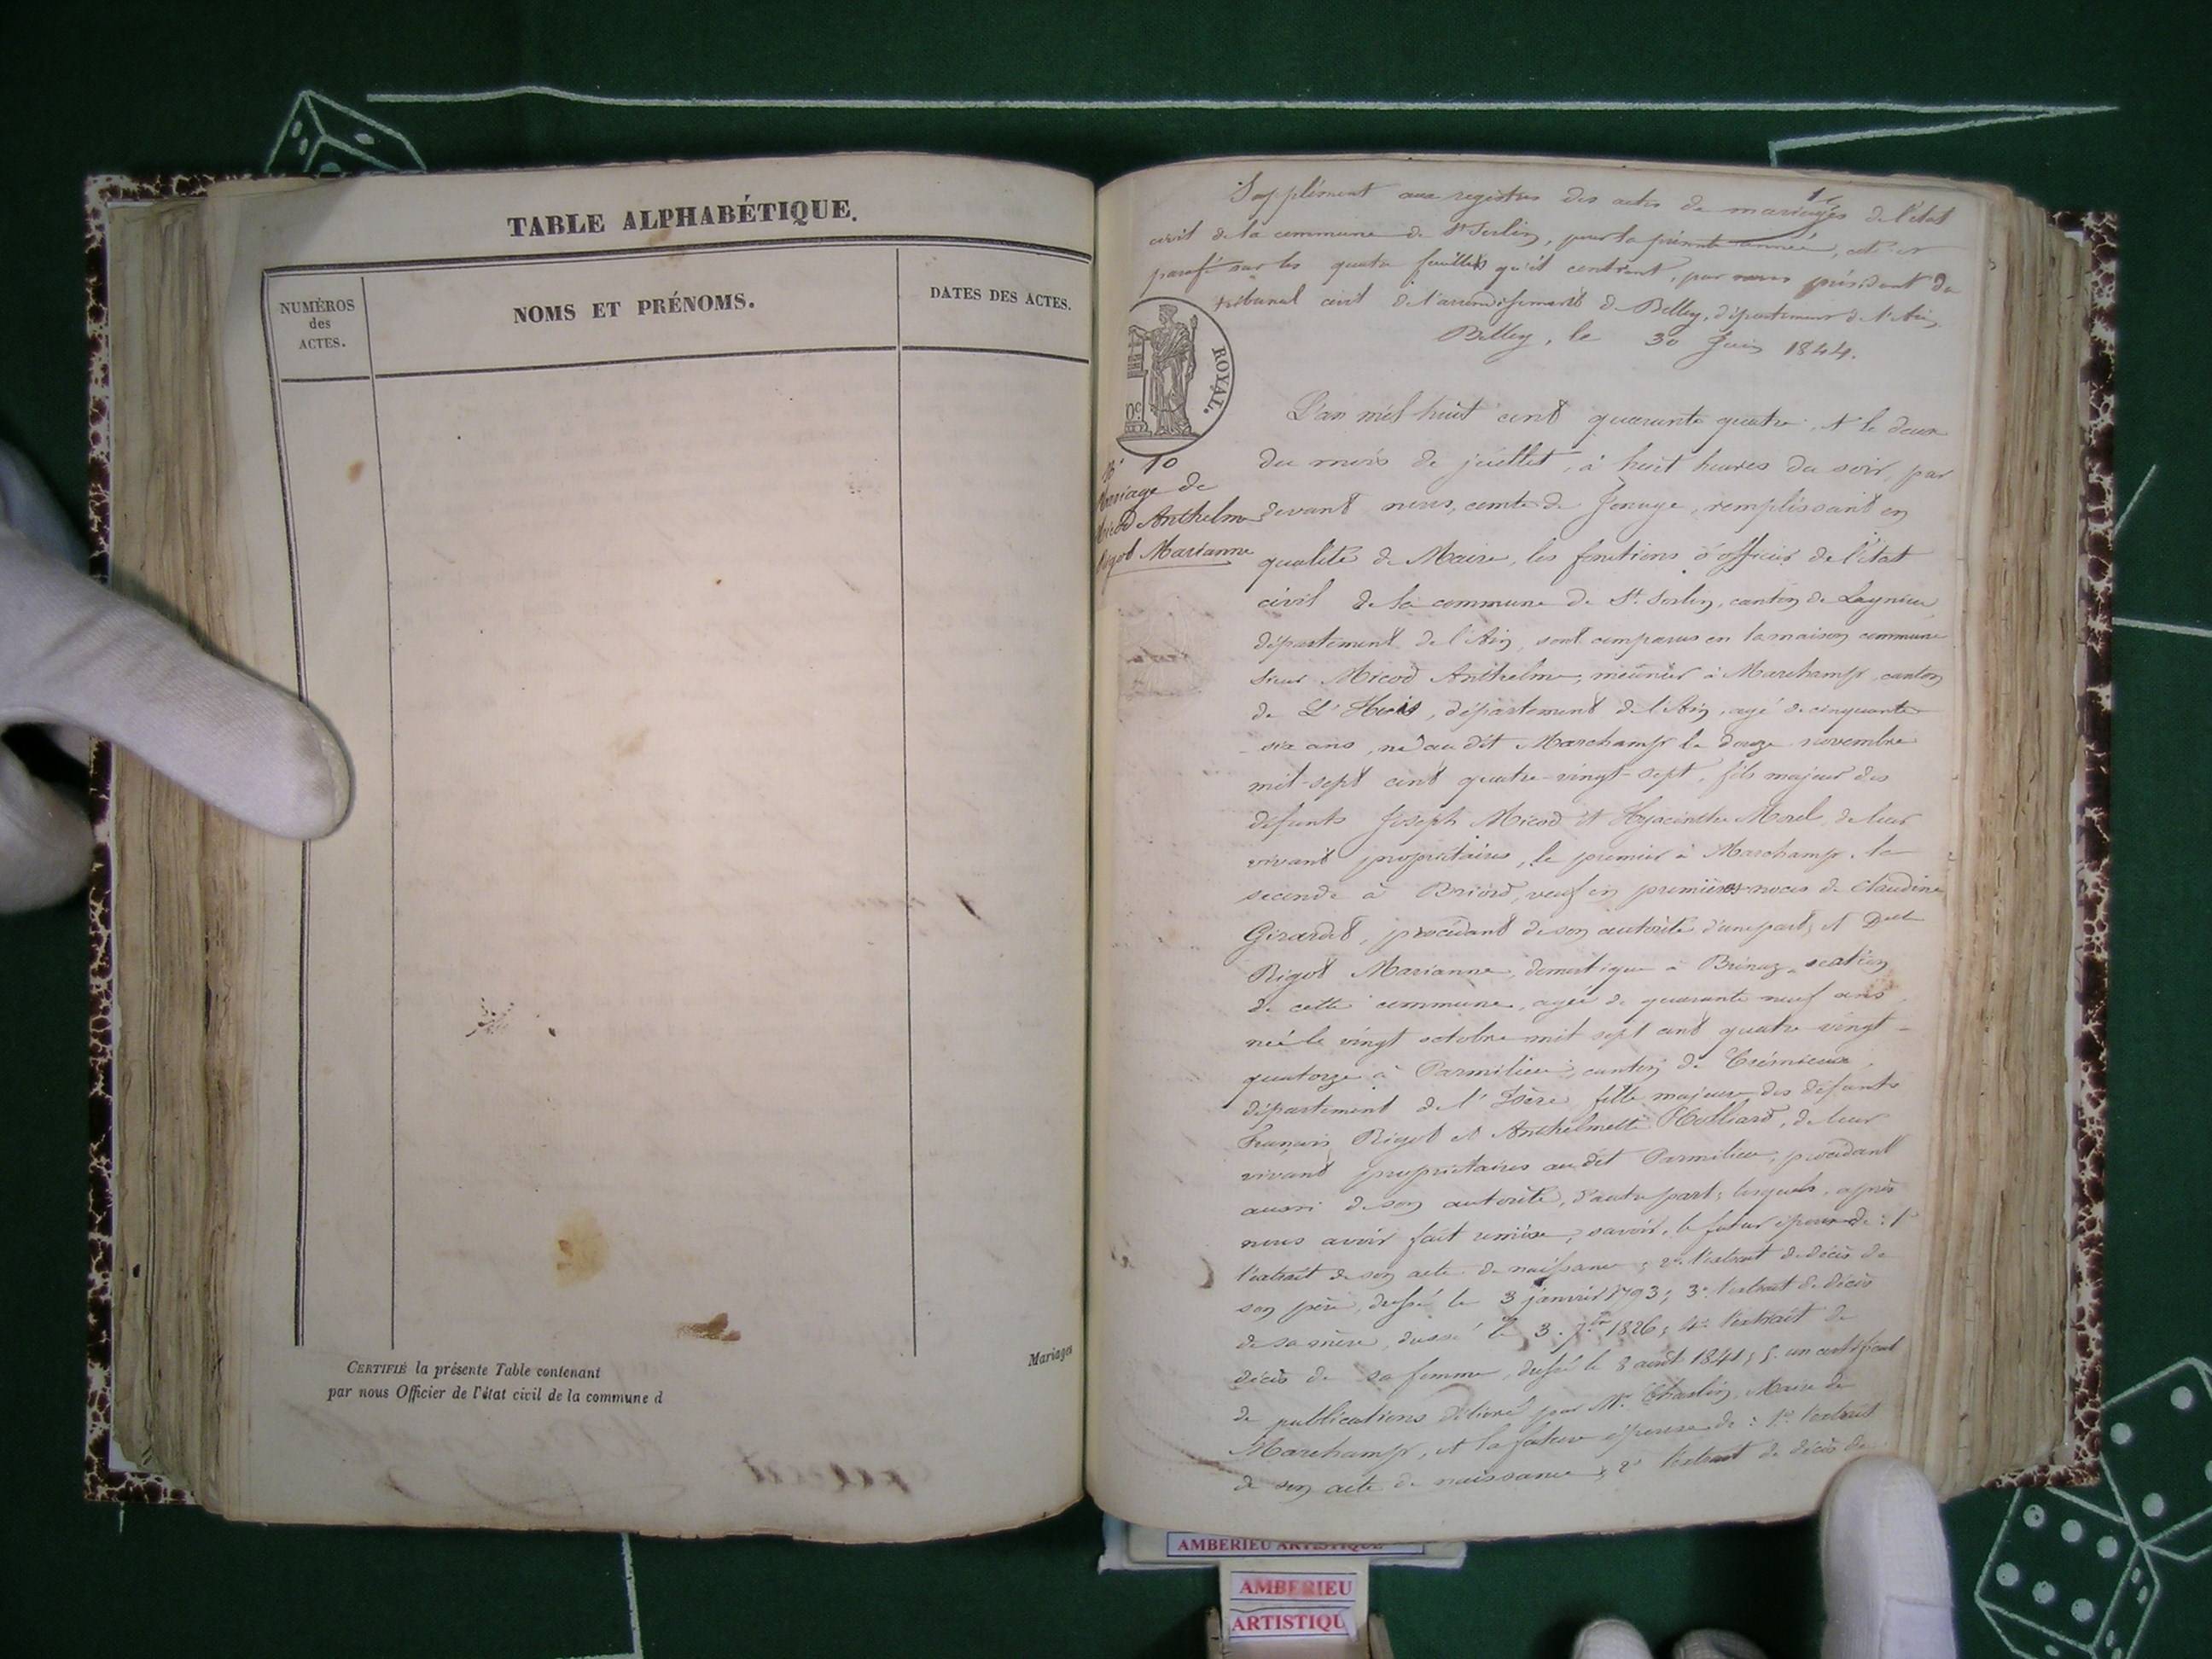 TABLE ALPHABÉTIQUE.
NUMÉROS
des
ACTES.
NOMS ET PRÉNOMS.
DATES DES ACTES.
CERTIFIÉ la présente Table contenant
par nous Officier de l'état civil de la commune d
Mariages
1
Supplément aux registres des actes de mariages de l'état
civil de la commune de St Sorlin, pour la présente année, coté et
parafé sur les quatre feuillets qu'il contient, par nous président du
tribunal civil de l'arrondissement de Belley, département de l'Ain.
Belley, le 30 Juin 1844.
ROYAL.
No 10
Mariage de
Micod Anthelme
Rigot Marianne
L'an mil huit cent quarante quatre, et le deux
du mois de juillet, à huit heures du soir, par
devant nous, comte de Jonage, remplissant en
qualité de Maire, les fonctions d'officier de l'état
civil de la commune de St. Sorlin, canton de Lagnieu
département de l'Ain, sont comparus en la maison commune
Sieur Micod Anthelme, meunier à Marchamp, canton
de L'Huis, département de l'Ain, agé de cinquante
six ans, né au dit Marchamp le douze novembre
mil-sept cent quatre-vingt-sept, fils majeur des
défunts Joseph Micod et Hyacinthe Morel, de leur
vivant propriétaires, le premier à Marchamp, la
seconde à Briord, veuf en premières noces de Claudine
Girardet, procédant de son autorité d'une part; et Delle
Rigot Marianne, domestique à Brénaz, section
de cette commune, agée de quarante neuf ans
née le vingt octobre mil sept cent quatre-vingt-
quatorze à Parmilieu, canton de Crémieux,
département de l'Isère, fille majeure des défunts
François Rigot et Anthelmette Holliard, de leur
vivant propriétaires au dit Parmilieu, procédant
aussi de son autorité, d'autre part; lesquels, après
nous avoir fait remise, savoir, le futur époux de: 1o
l'extrait de son acte de naissance; 2o l'extrait de décès de
son père, dressé le 3 janvier 1793; 3o l'extrait de décès
de sa mère, dressé le 3 7bre 1826; 4o l'extrait de
décès de sa femme, dressé le 8 août 1841; 5o un certificat
de publications délivré par Mr. Charlin, Maire de
Marchamp, et la future épouse de: 1o l'extrait
de son acte de naissance; 2o l'extrait de décès de
AMBERIEU ARTISTIQUE
AMBERIEU
ARTISTIQU